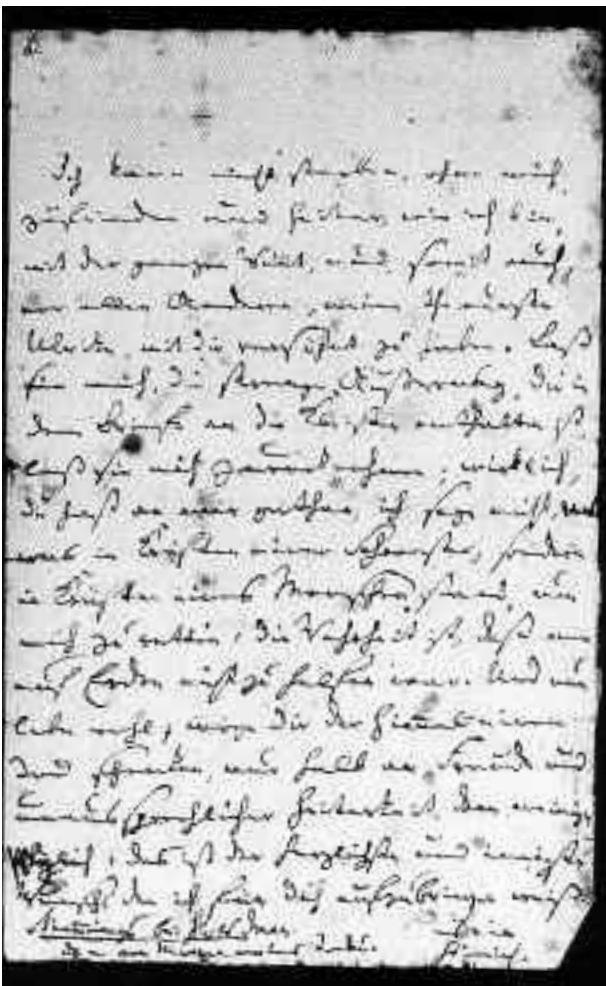 Ich kann nicht sterben, ohne mich,
zufrieden und heiter, wie ich bin,
mit der ganzen Welt, und somit auch,
vor allen Anderen, meine theuerste
Ulrike, mit dir versöhnt zu haben. Laß
sie mich, die strenge Äußerung, die in
dem Briefe an die Kleisten enthalten ist,
laß sie mich zurücknehmen; wirklich,
du hast an mir gethan, ich sage nicht,
was in Kräften einer Schwester, sondern
in Kräften eines Menschen stand, um
mich zu retten: die Wahrheit ist, daß mir
auf Erden nicht zu helfen war. Und nun
lebe wohl; möge dir der Himmel einen
Tod schenken, nur halb an Freude und
unaussprechlicher Heiterkeit, dem meini-
gen gleich: das ist der herzlichste und innigste
Wunsch den ich für dich aufzubringen weiß.
Stimmings bei Potsdam
d. am Morgen meines Todes
Heinrich.